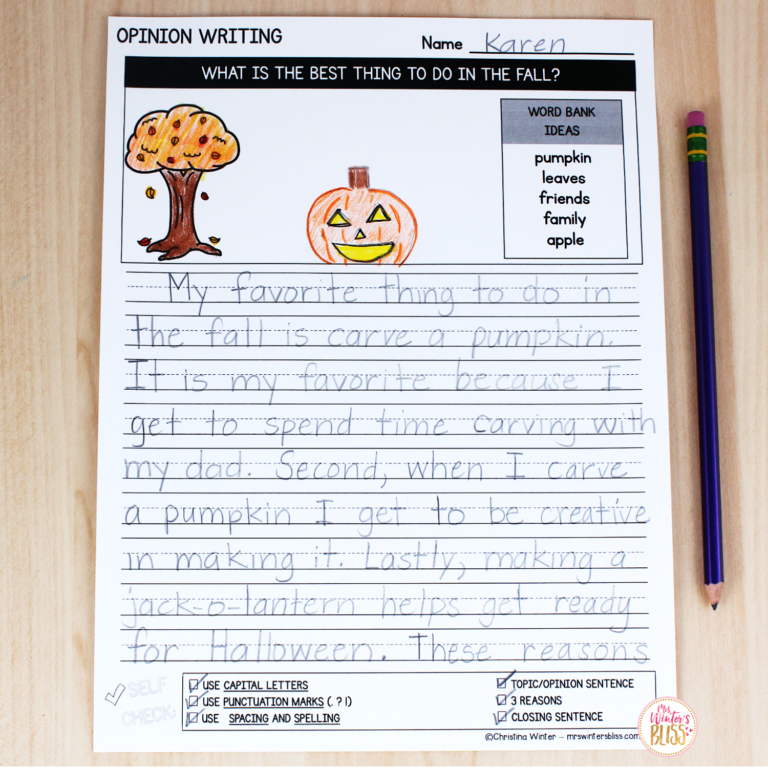 OPINION WRITING
Name Karen
WHAT IS THE BEST THING TO DO IN THE FALL?
WORD BANK
IDEAS
pumpkin
leaves
friends
family
apple
My favorite thing to do in
the fall is carve a pumpkin.
It is my favorite because I
get to spend time carving with
my dad. Second, when I carve
a pumpkin I get to be creative
in making it. Lastly, making a
jack-o-lantern helps get ready
for Halloween. These reasons
SELF
CHECK:
USE CAPITAL LETTERS
USE PUNCTUATION MARKS (. ? !)
USE SPACING AND SPELLING
TOPIC/OPINION SENTENCE
3 REASONS
CLOSING SENTENCE
©Christina Winter – mrswintersbliss.com
Mrs.
Winter's
BLISS